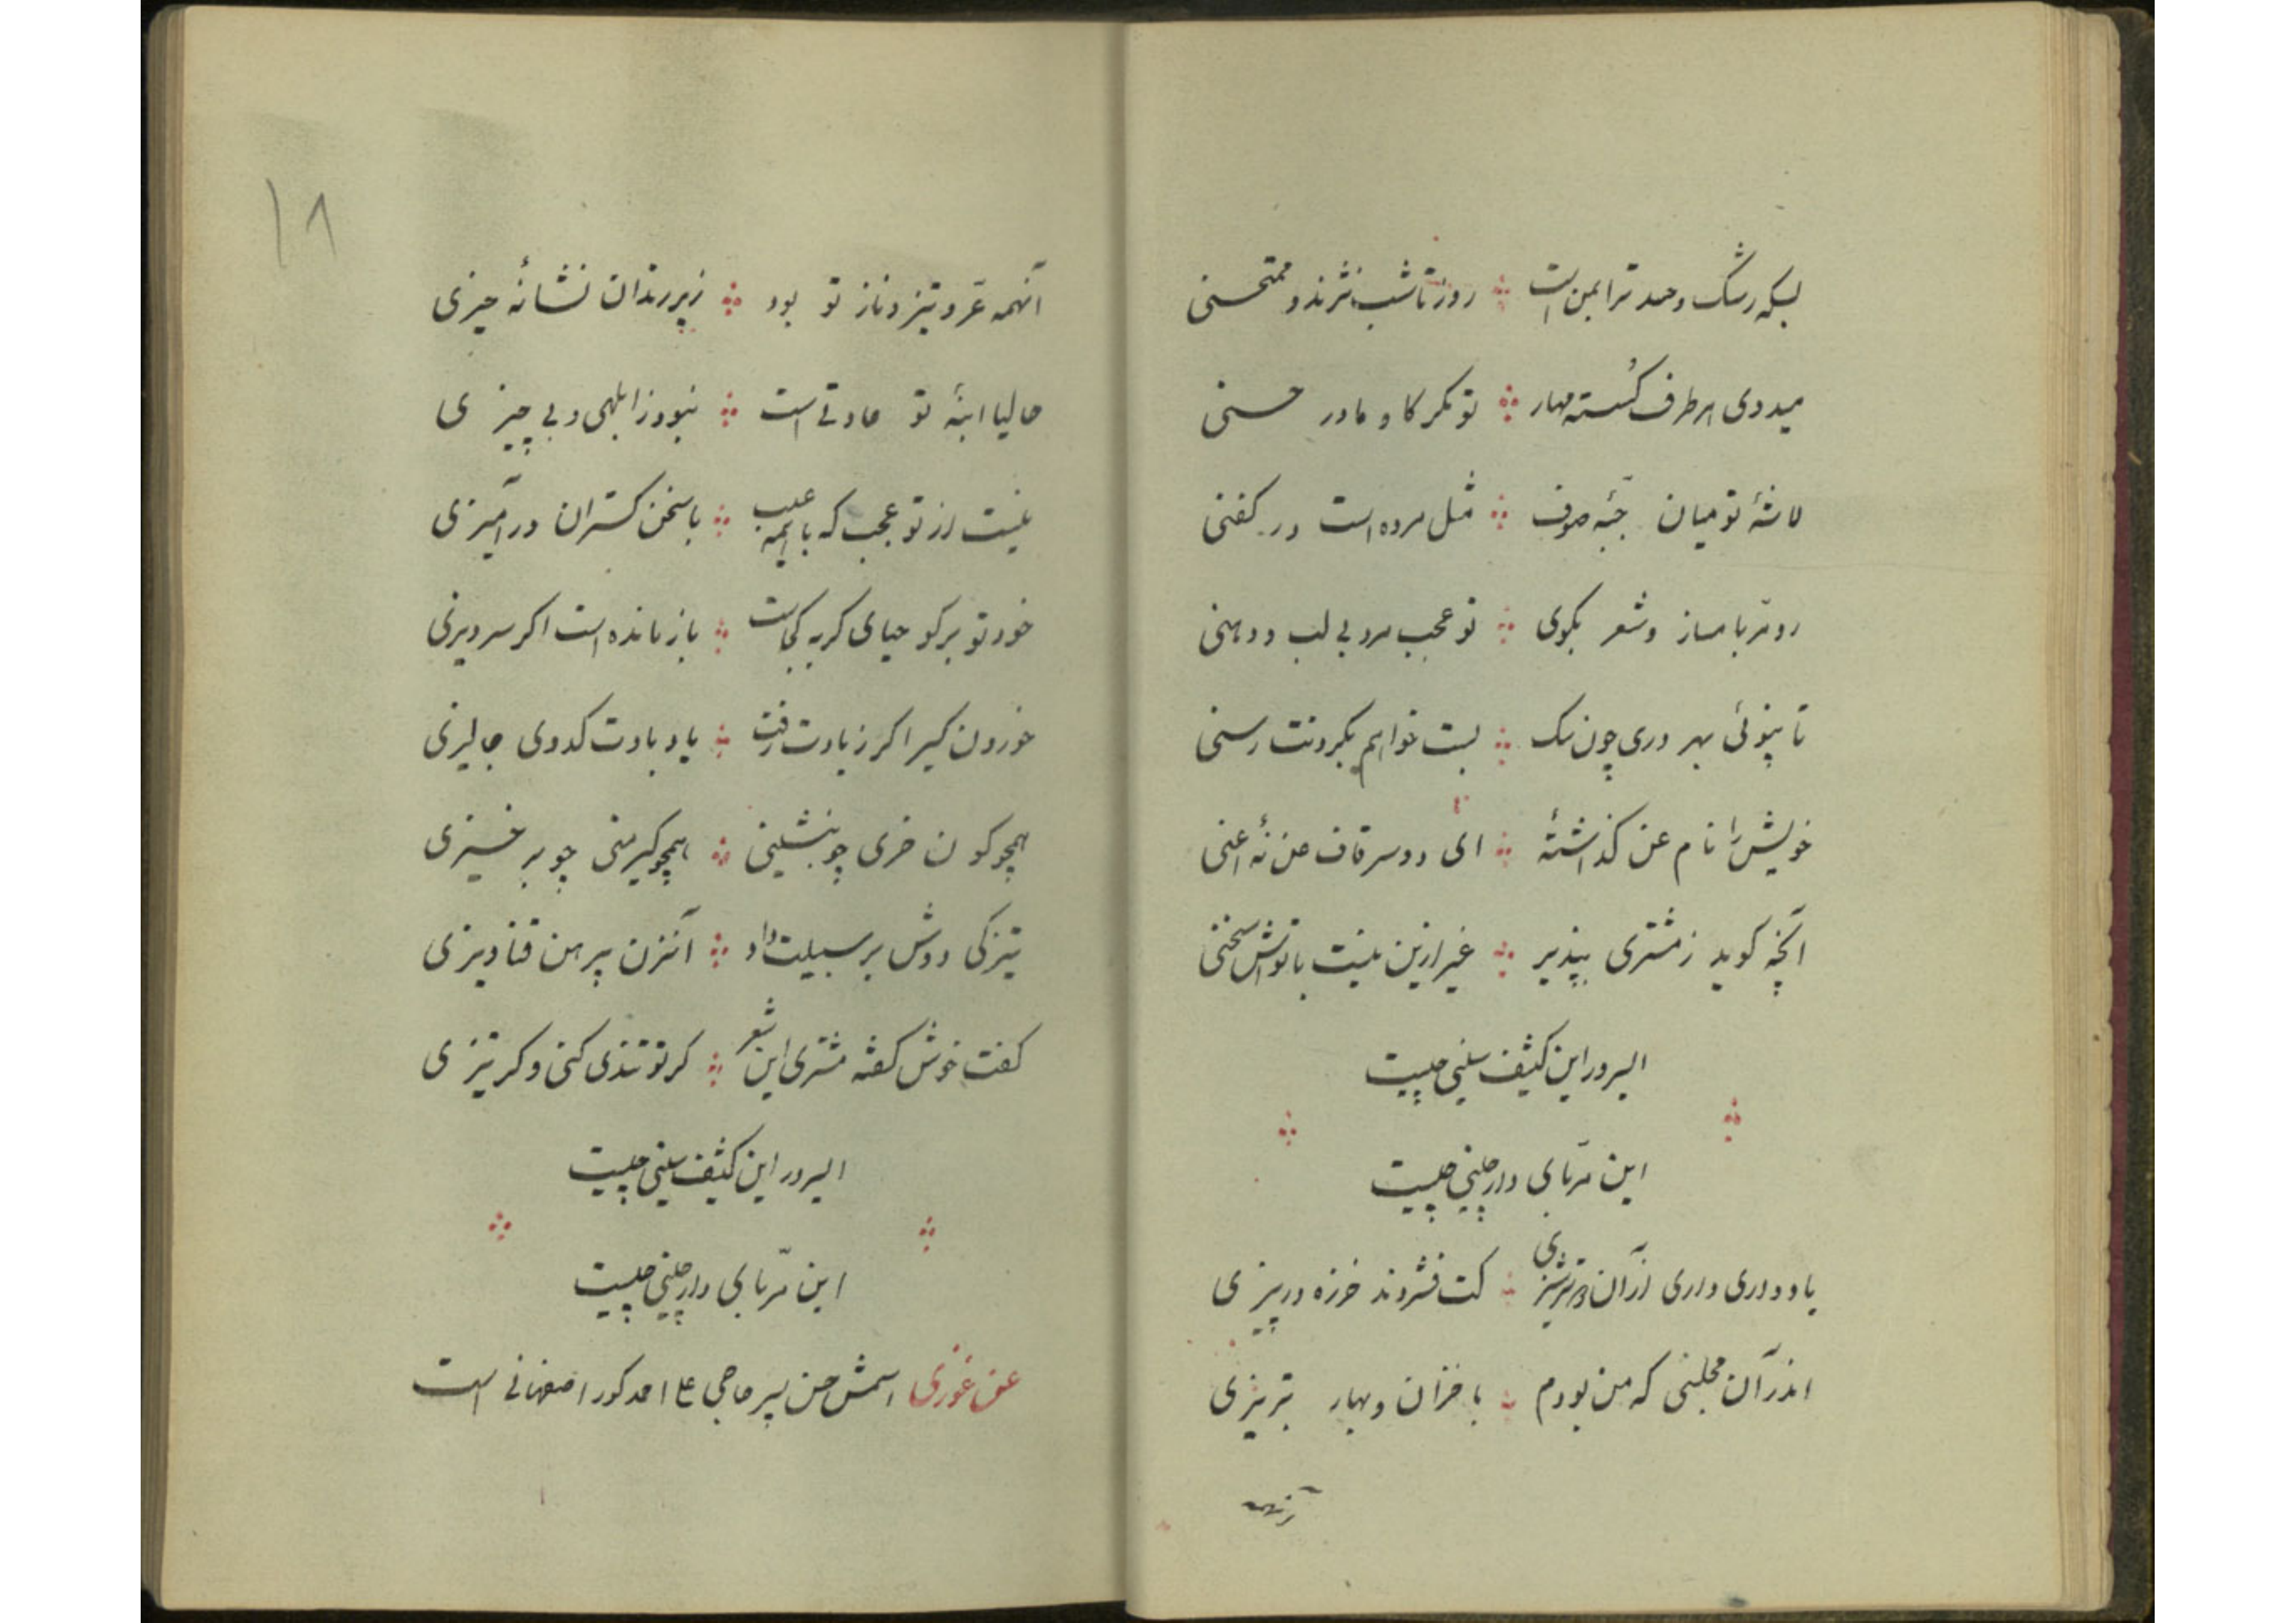 بسکه رشک و حسد ترا بمن است ❖ روز تا شب نژند و ممتحنی
میدوی هر طرف گسسته مهار ❖ تو مکر کاو مادر حسنی
لاشهٔ تو میان جبّه صوف ❖ مثل مرده است در کفنی
رو مربا مساز و شعر بکوی ❖ تو عجب مرد بی لب و دهنی
تا نپوئی بهر دری چون سک ❖ بست خواهم بکردنت رسنی
خویش را نام عن کذاشتهٔ ❖ ای دو سر قاف عن نهٔ اعنی
آنچه کوید ز مشتری بپذیر ❖ غیر ازین نیست با تواش سخنی
این کثیف سنی چیست
این مربّای دارچینی چیست
یاد داری داری از آن ❖ کت فشردند خرزه در پیزی
اندر آن مجلسی که من بودم ❖ با خزان و بهار تبریزی
آنهمه
۱۸
آنهمه عرّ و تیز و ناز تو بود ❖ زیر رندان نشانهٔ حیزی
حالیا ابنهٔ تو عادتی است ❖ نبود ز ابلهی و بی چیزی
نیست از تو عجب که با اینهمه عیب ❖ با سخن کستران در آمیزی
خود تو برکو حیای کربه کجاست ❖ باز مانده است اکر سر دیزی
خوردن کیر اکر ز یادت رفت ❖ یاد بادت کدوی جالیزی
همچو کون خری چو بنشینی ❖ همچو کیر منی چو بر خیزی
تیزکی دوش بر سبیلت داد ❖ آنزن پیرهن قناویزی
کفت خوش کفته مشتری این شعر ❖ کر تو تندی کنی و کر تیزی
این کثیف سنی چیست
این مربّای دارچینی چیست
عن غوزی اسمش حسن پسر حاجی علی احمد کور اصفهانی است